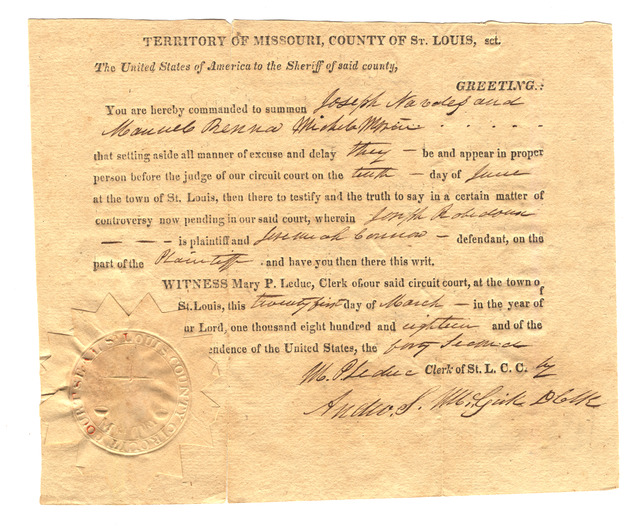 TERRITORY OF MISSOURI, COUNTY OF ST. LOUIS, sct.
The United States of America to the Sheriff of said county,
GREETING:
You are hereby commanded to summon Joseph and
Manuel
that setting aside all manner of excuse and delay they – be and appear in proper
person before the judge of our circuit court on the tenth – day of June
at the town of St. Louis, then there to testify and the truth to say in a certain matter of
controversy now pending in our said court, wherein Joseph
– – – – is plaintiff and Jeremiah Connor – defendant, on the
part of the Plaintiff and have you then there this writ.
WITNESS Mary P. Leduc, Clerk of our said circuit court, at the town of
St. Louis, this twenty first day of March – in the year of
ur Lord, one thousand eight hundred and eighteen and of the
ndence of the United States, the forty second
M. P. Leduc Clerk of St. L. C. C. by
Andw. S. McGirk D Clk
ST LOUIS COUNTY CIRCUIT COURT SEAL